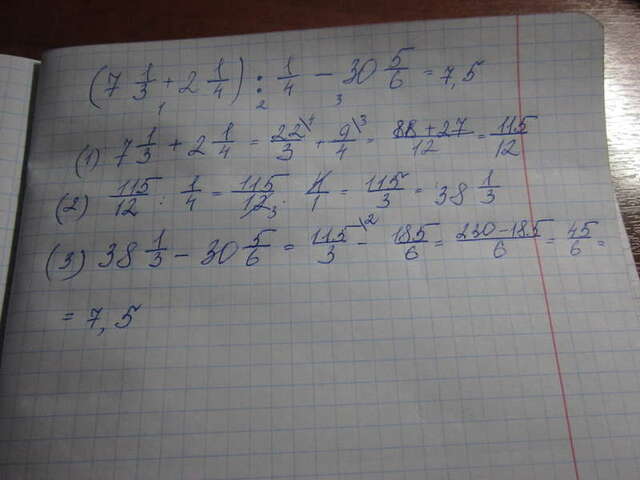 (7 1/3 + 2 1/4) : 1/4 − 30 5/6 = 7,5
1 2 3
(1) 7 1/3 + 2 1/4 = 22\4/3 + 9\3/4 = 88+27/12 = 115/12
(2) 115/12 : 1/4 = 115/12 3 · 4/1 = 115/3 = 38 1/3
(3) 38 1/3 − 30 5/6 = 115\2/3 − 185/6 = 230−185/6 = 45/6 =
= 7,5